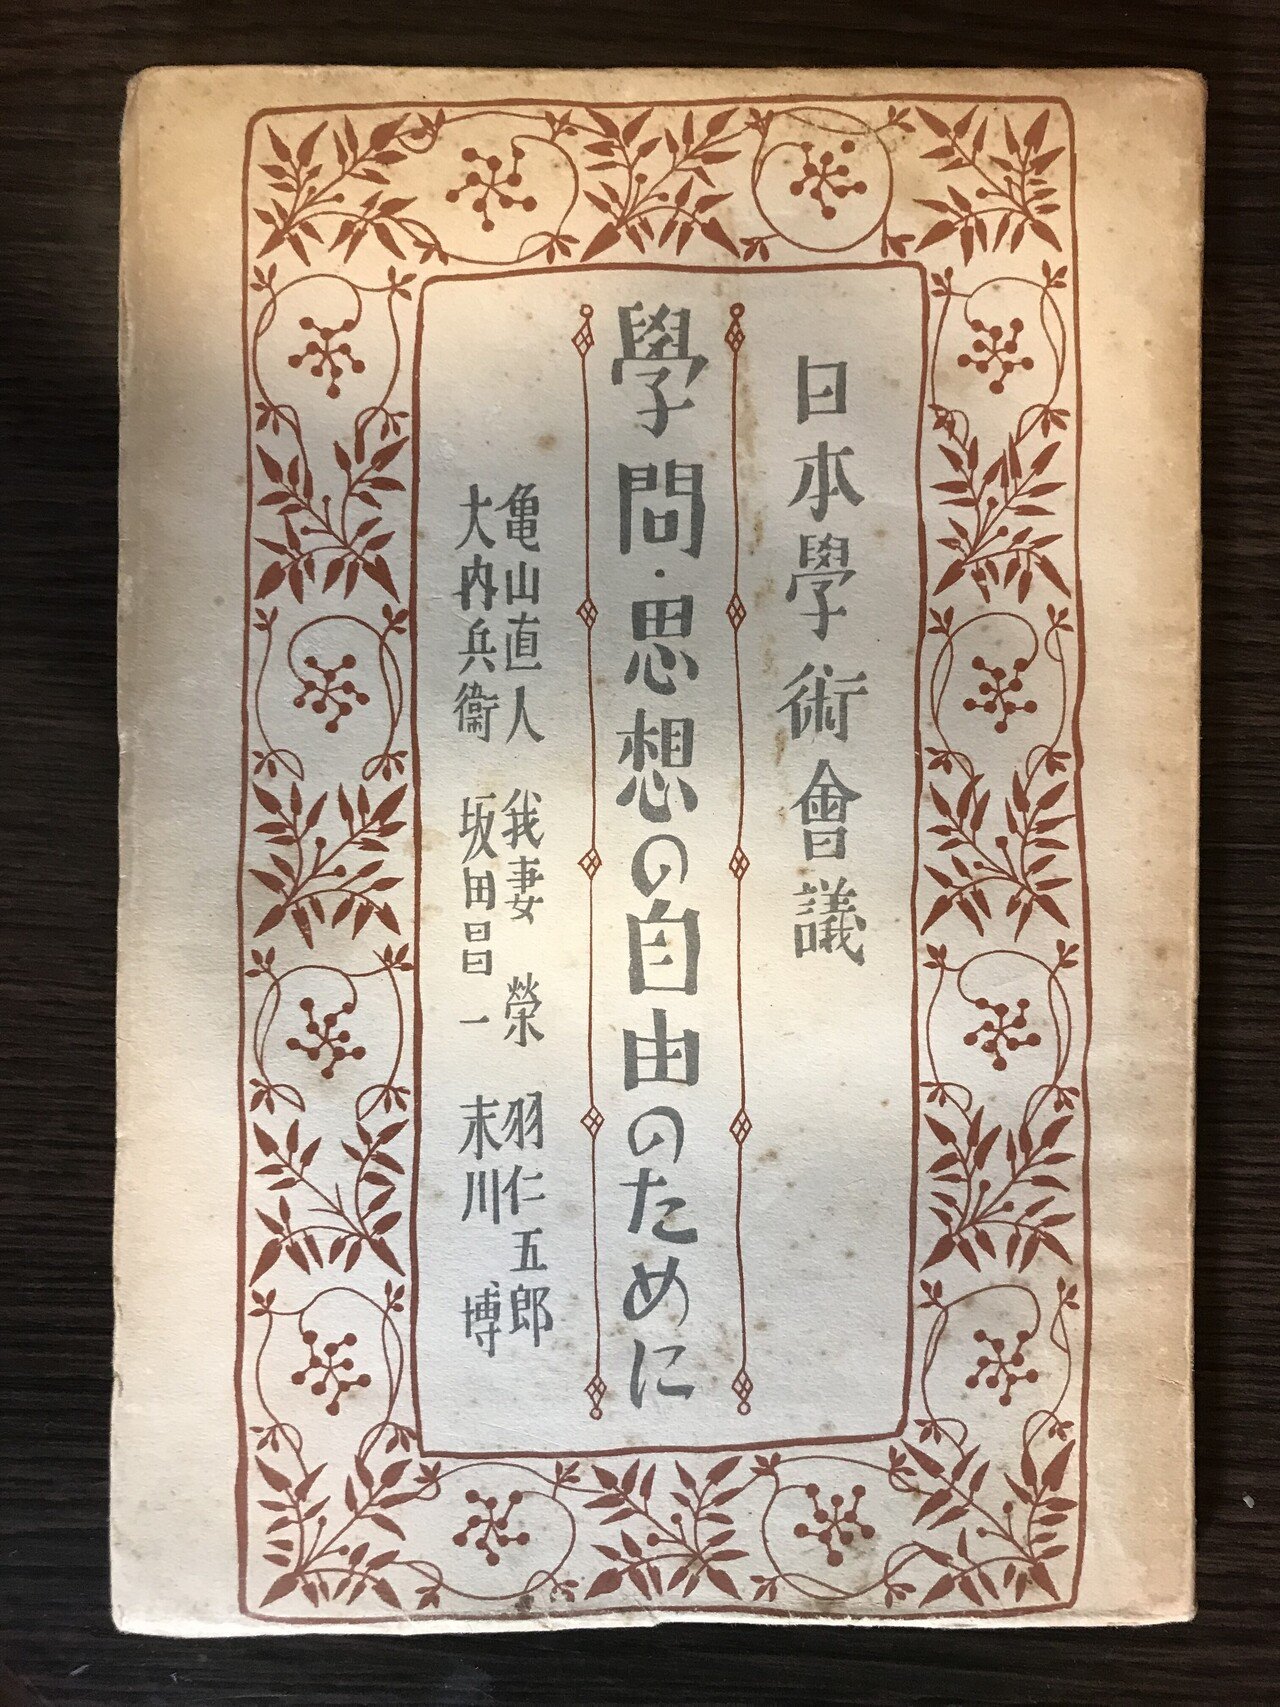 日本學術會議
學問・思想の自由のために
亀山直人 我妻榮 羽仁五郎
大内兵衞 坂田昌一 末川博